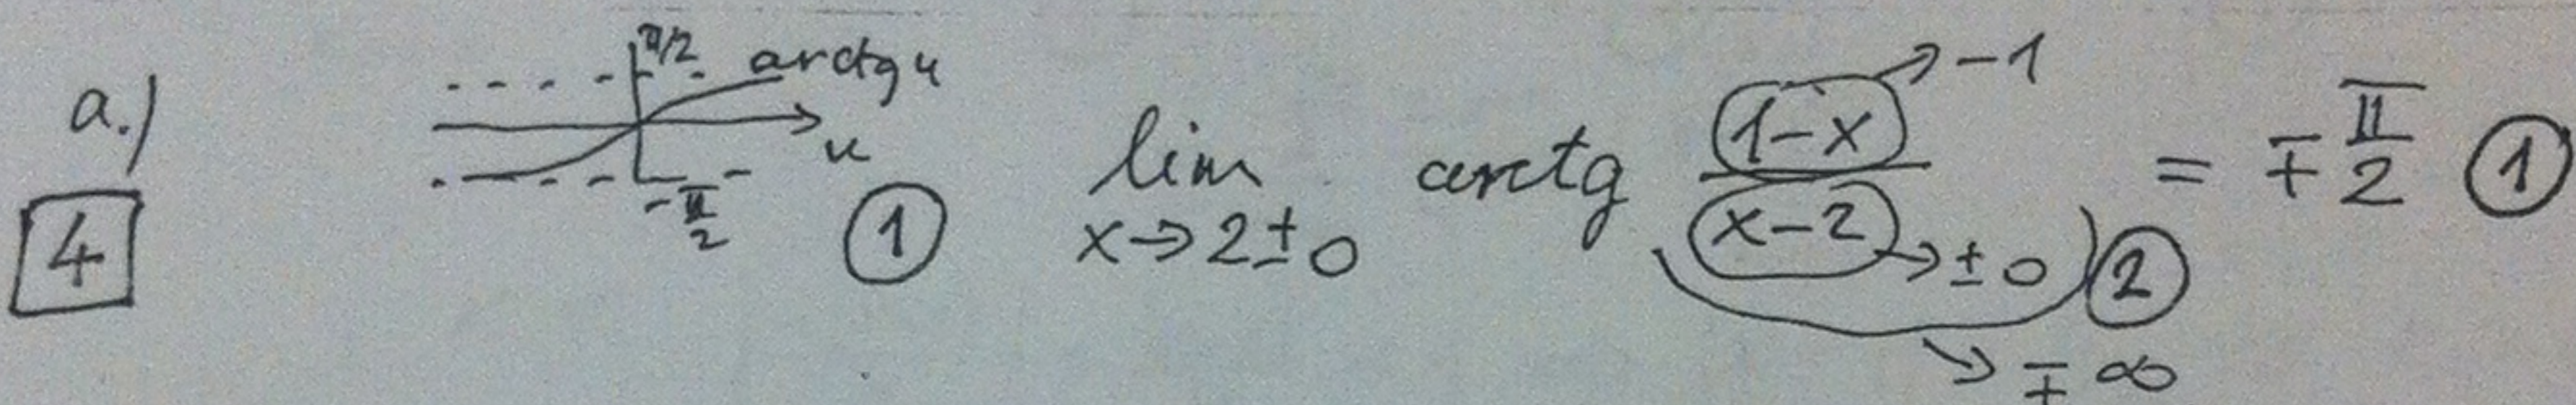 a.)
4
π/2 arctg u
u
-π/2
①
lim x→2±0 arctg (1-x)/(x-2) = ∓ π/2 ①
→ -1
→ ±0 ②
→ ∓ ∞